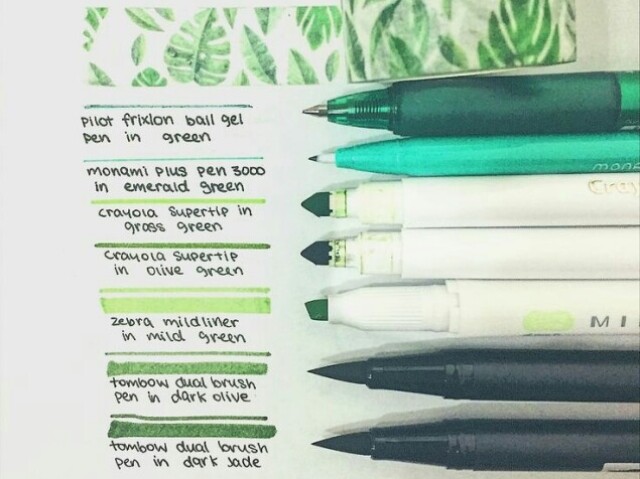 pilot frixion ball gel
pen in green
monami plus pen 3000
in emerald green
crayola supertip in
grass green
crayola supertip
in olive green
zebra mildliner
in mild green
tombow dual brush
pen in dark olive
tombow dual brush
pen in dark jade
mona
Cray
MI